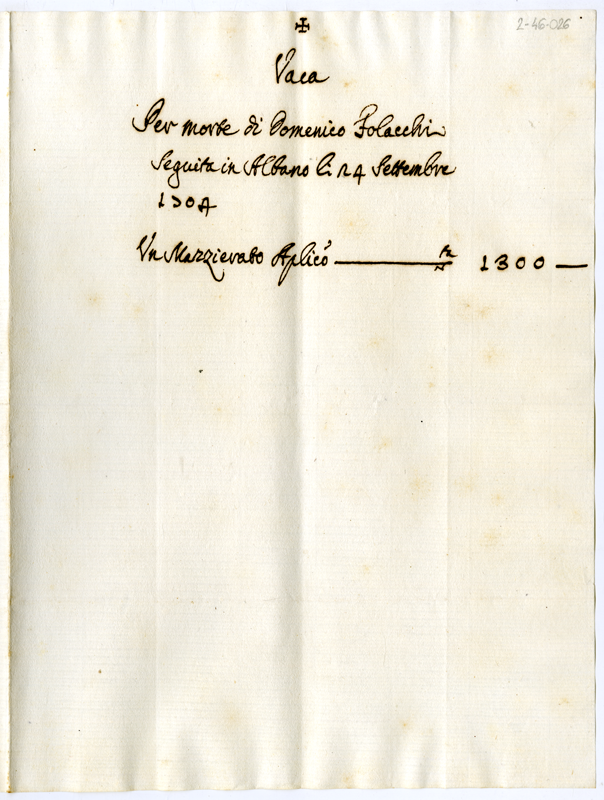 ✠
2-46-026
Vaca
Per morte di Domenico Folacchi
Seguita in Albano li 24 Settembre
Un Mazzierato Aplicò 1300